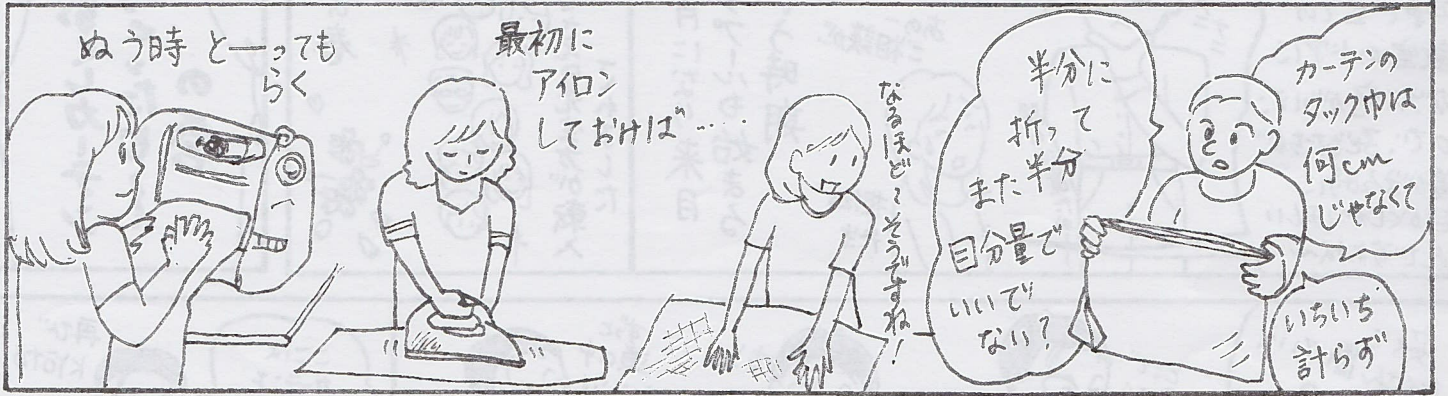 カーテンの
タック巾は
何cm
じゃなくて
いちいち
計らず
半分に
折って
また半分
目分量で
いいで
ない?
なるほど〜そうですね!
最初に
アイロン
しておけば……
ぬう時 と──っても
らく